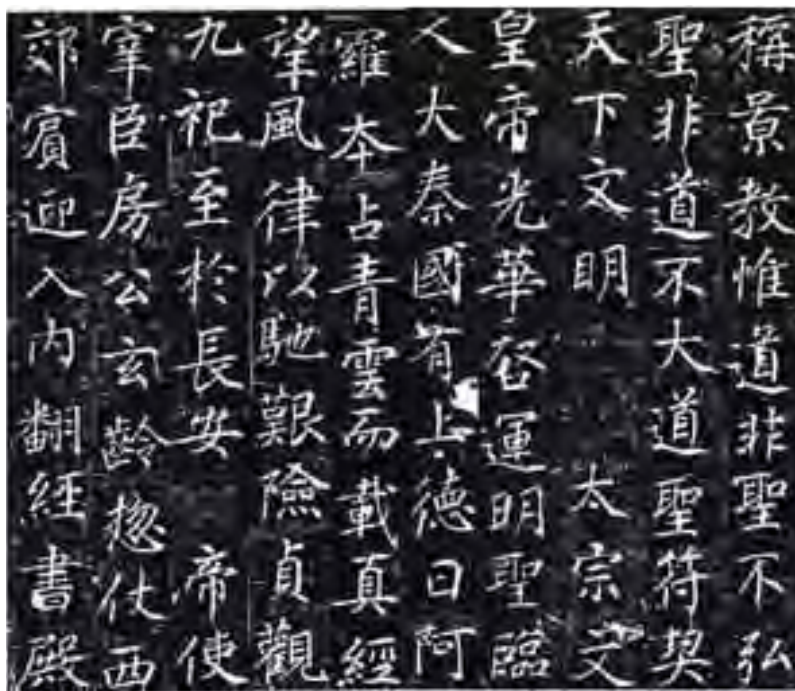 稱景教惟道非聖不弘
聖非道不大道聖符契
天下文明 太宗文
皇帝光華啓運明聖臨
人大秦國有上德曰阿
羅夲占青雲而載真經
望風律以馳艱險貞觀
九祀至於長安 帝使
宰臣房公玄齡惣仗西
郊賓迎入內翻經書殿